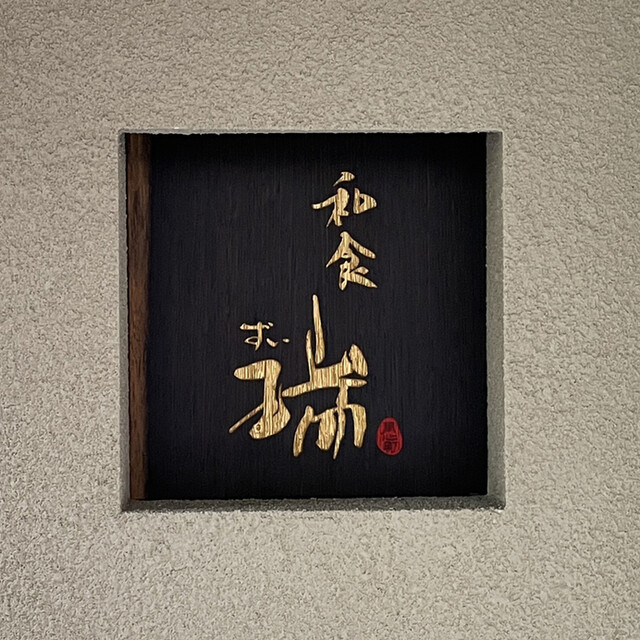 和食
ずい
瑞